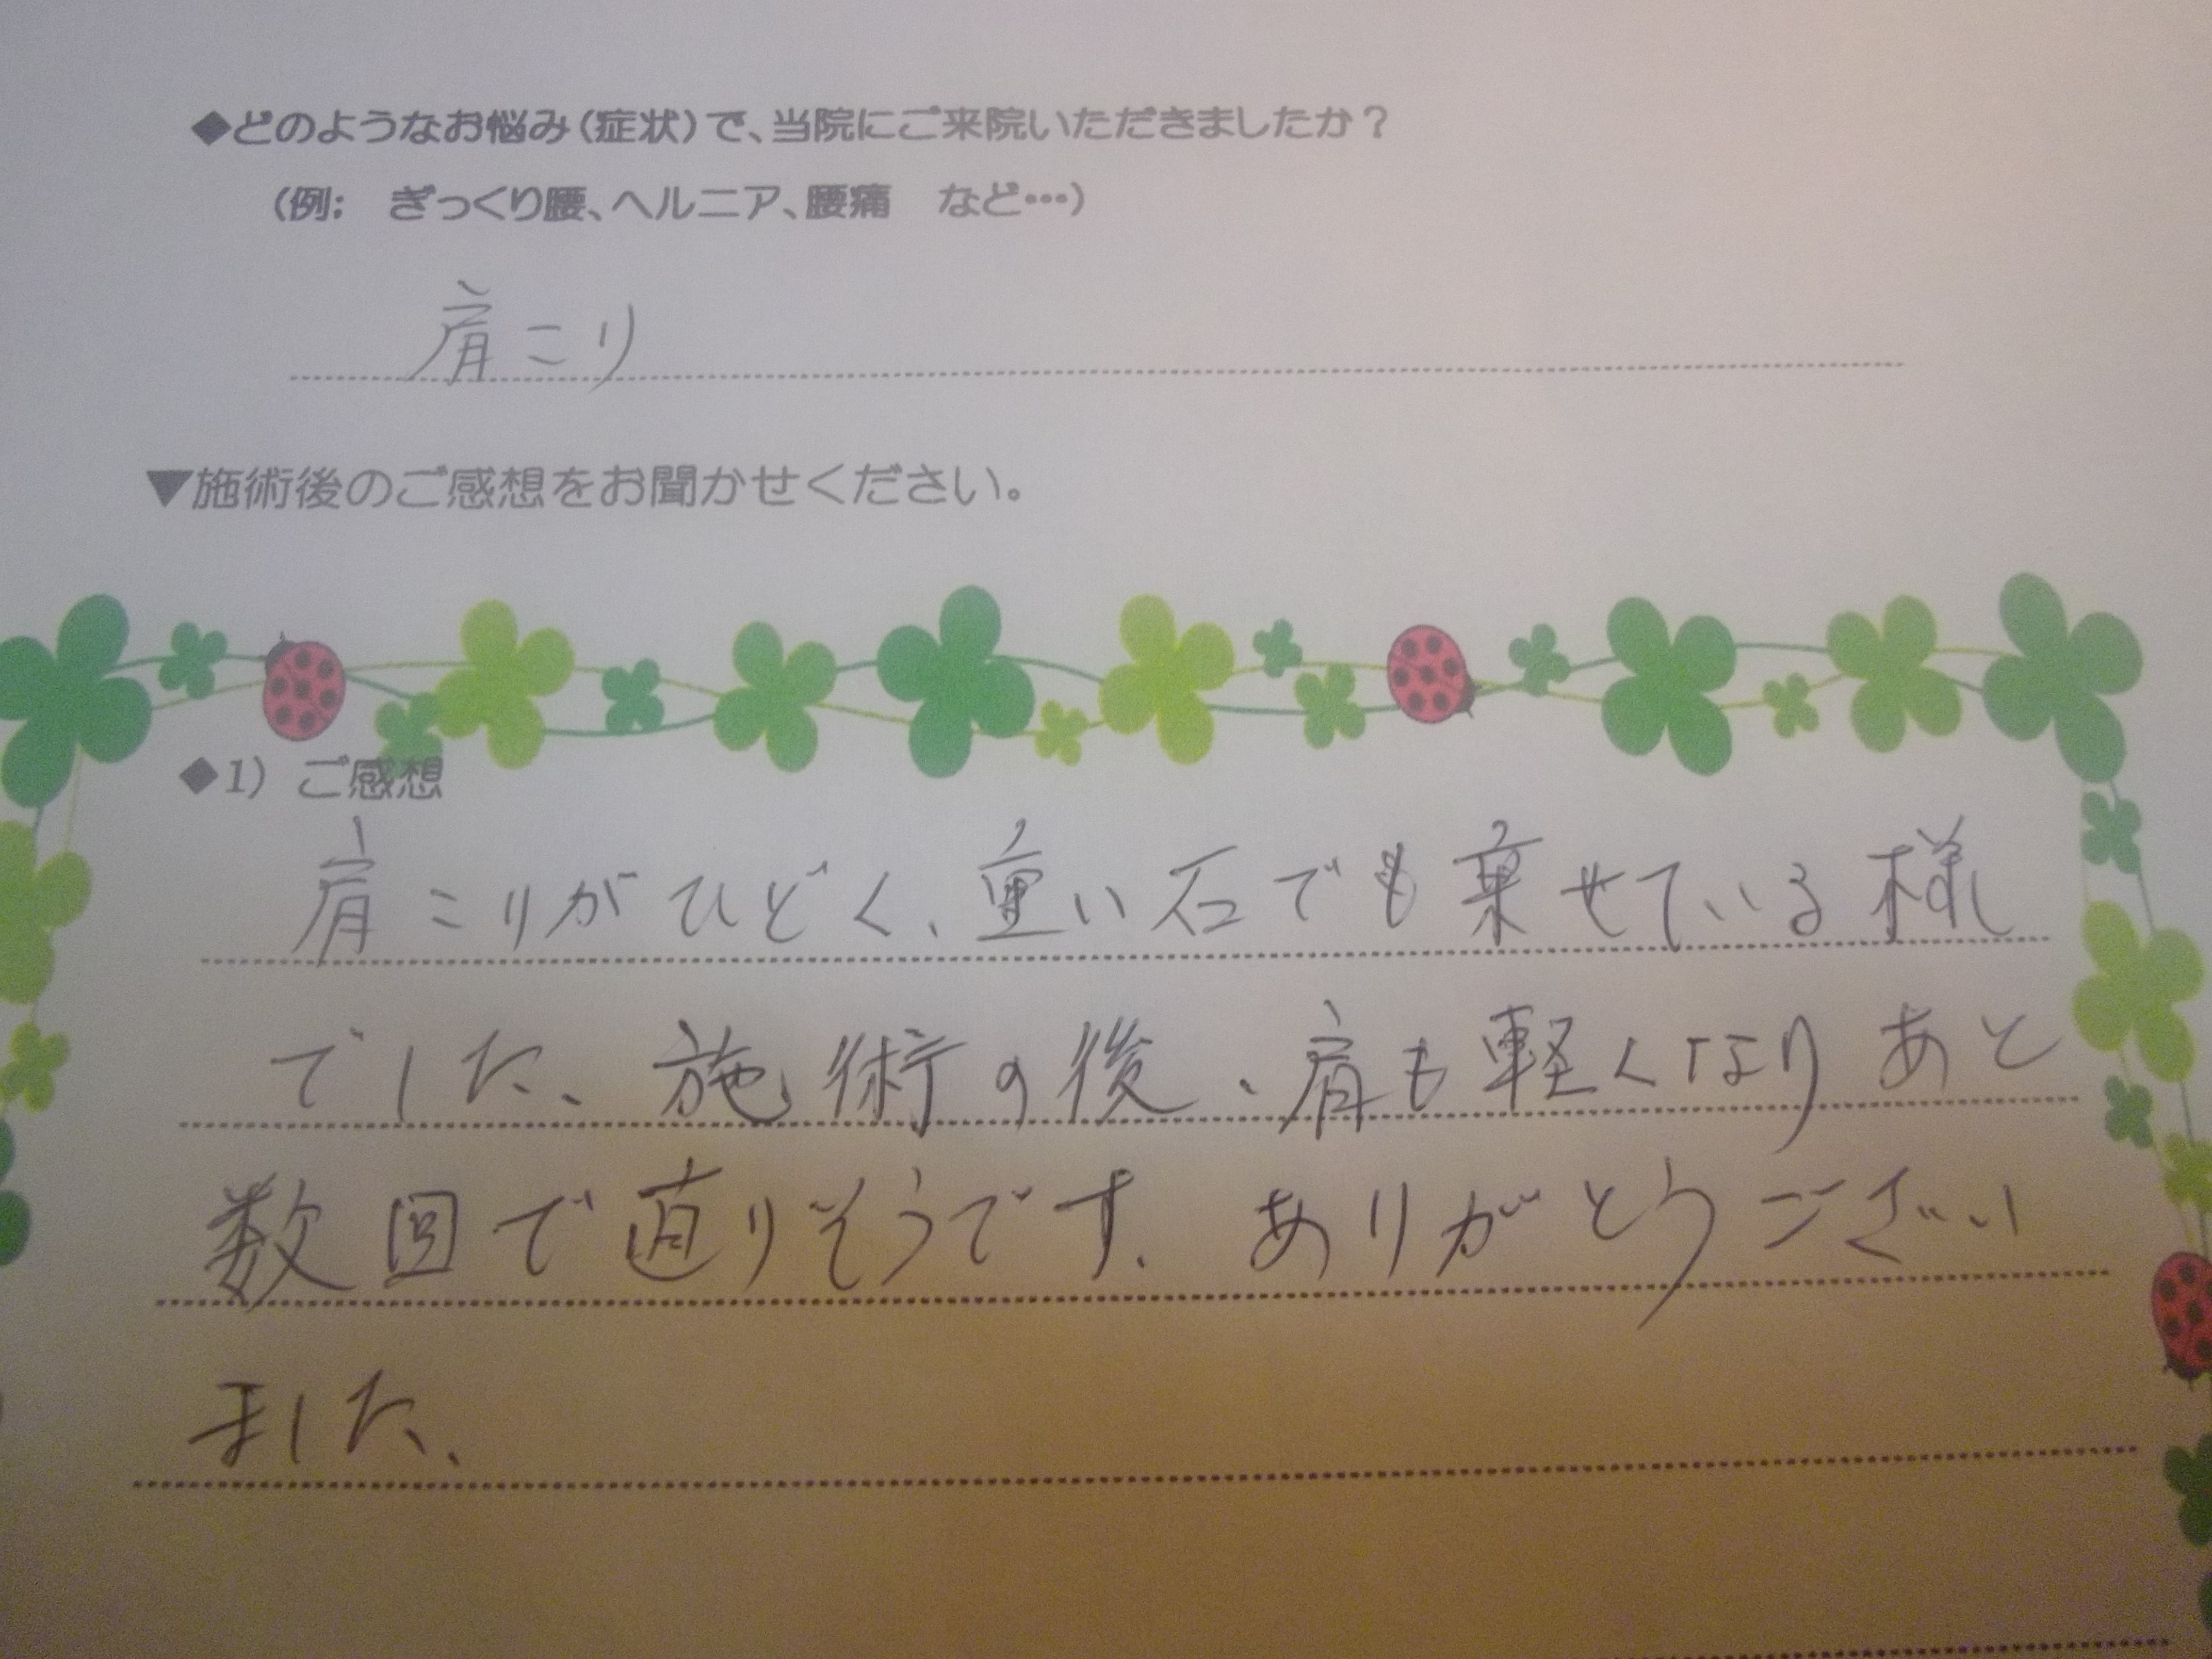 ◆どのようなお悩み(症状)で、当院にご来院いただきましたか?
(例; ぎっくり腰、ヘルニア、腰痛 など…)
肩こり
▼施術後のご感想をお聞かせください。
◆1) ご感想
肩こりがひどく、重い石でも乗せている様
でした、施術の後、肩も軽くなりあと
数回で直りそうです、ありがとうござい
ました、